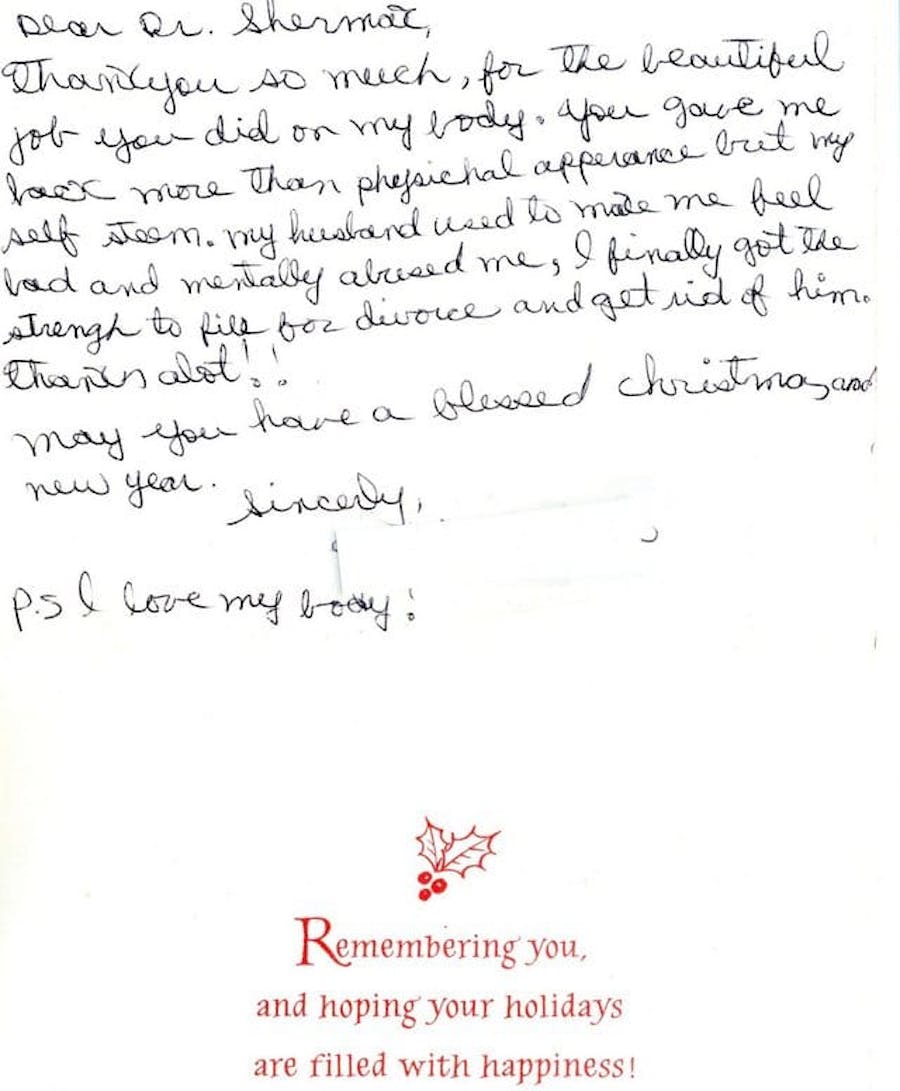 Dear Dr. Shermak,
Thankyou so much, for the beautiful
job you did on my body. You gave me
back more than physichal apperance but my
self steem. my husband used to make me feel
bad and mentally abused me, I finally got the
strengh to file for divorce and get rid of him.
thanks alot!!
may you have a blessed christmas and
new year.
sincerly,
P.S I love my body!
Remembering you,
and hoping your holidays
are filled with happiness!